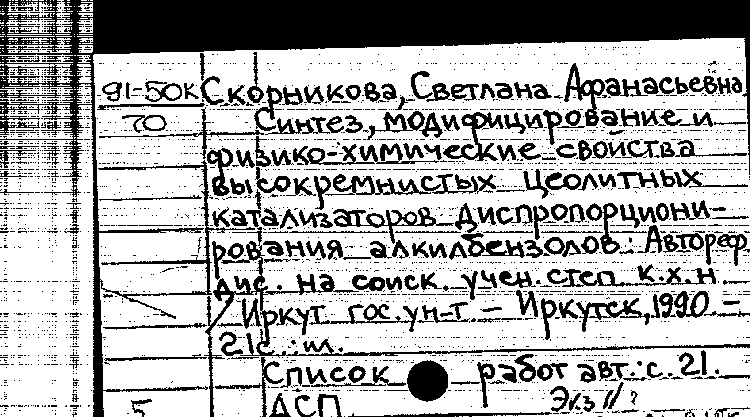 91-50К Скорникова, Светлана Афанасьевна
70 Синтез, модифицирование и
физико-химические свойства
высокремнистых цеолитных
катализаторов диспропорциони-
рования алкилбензолов: Автореф.
дис. на соиск. учен. степ. к.х.н
/ Иркут. гос. ун-т – Иркутск, 1990 –
21с.: ил.
Список работ авт.: с. 21.
5 ДСП Экз